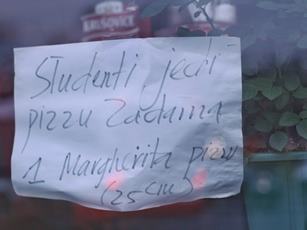 KRUŠOVICE
Studenti jedí
pizzu Zadarma
1 Margherita pizza
(25cm)